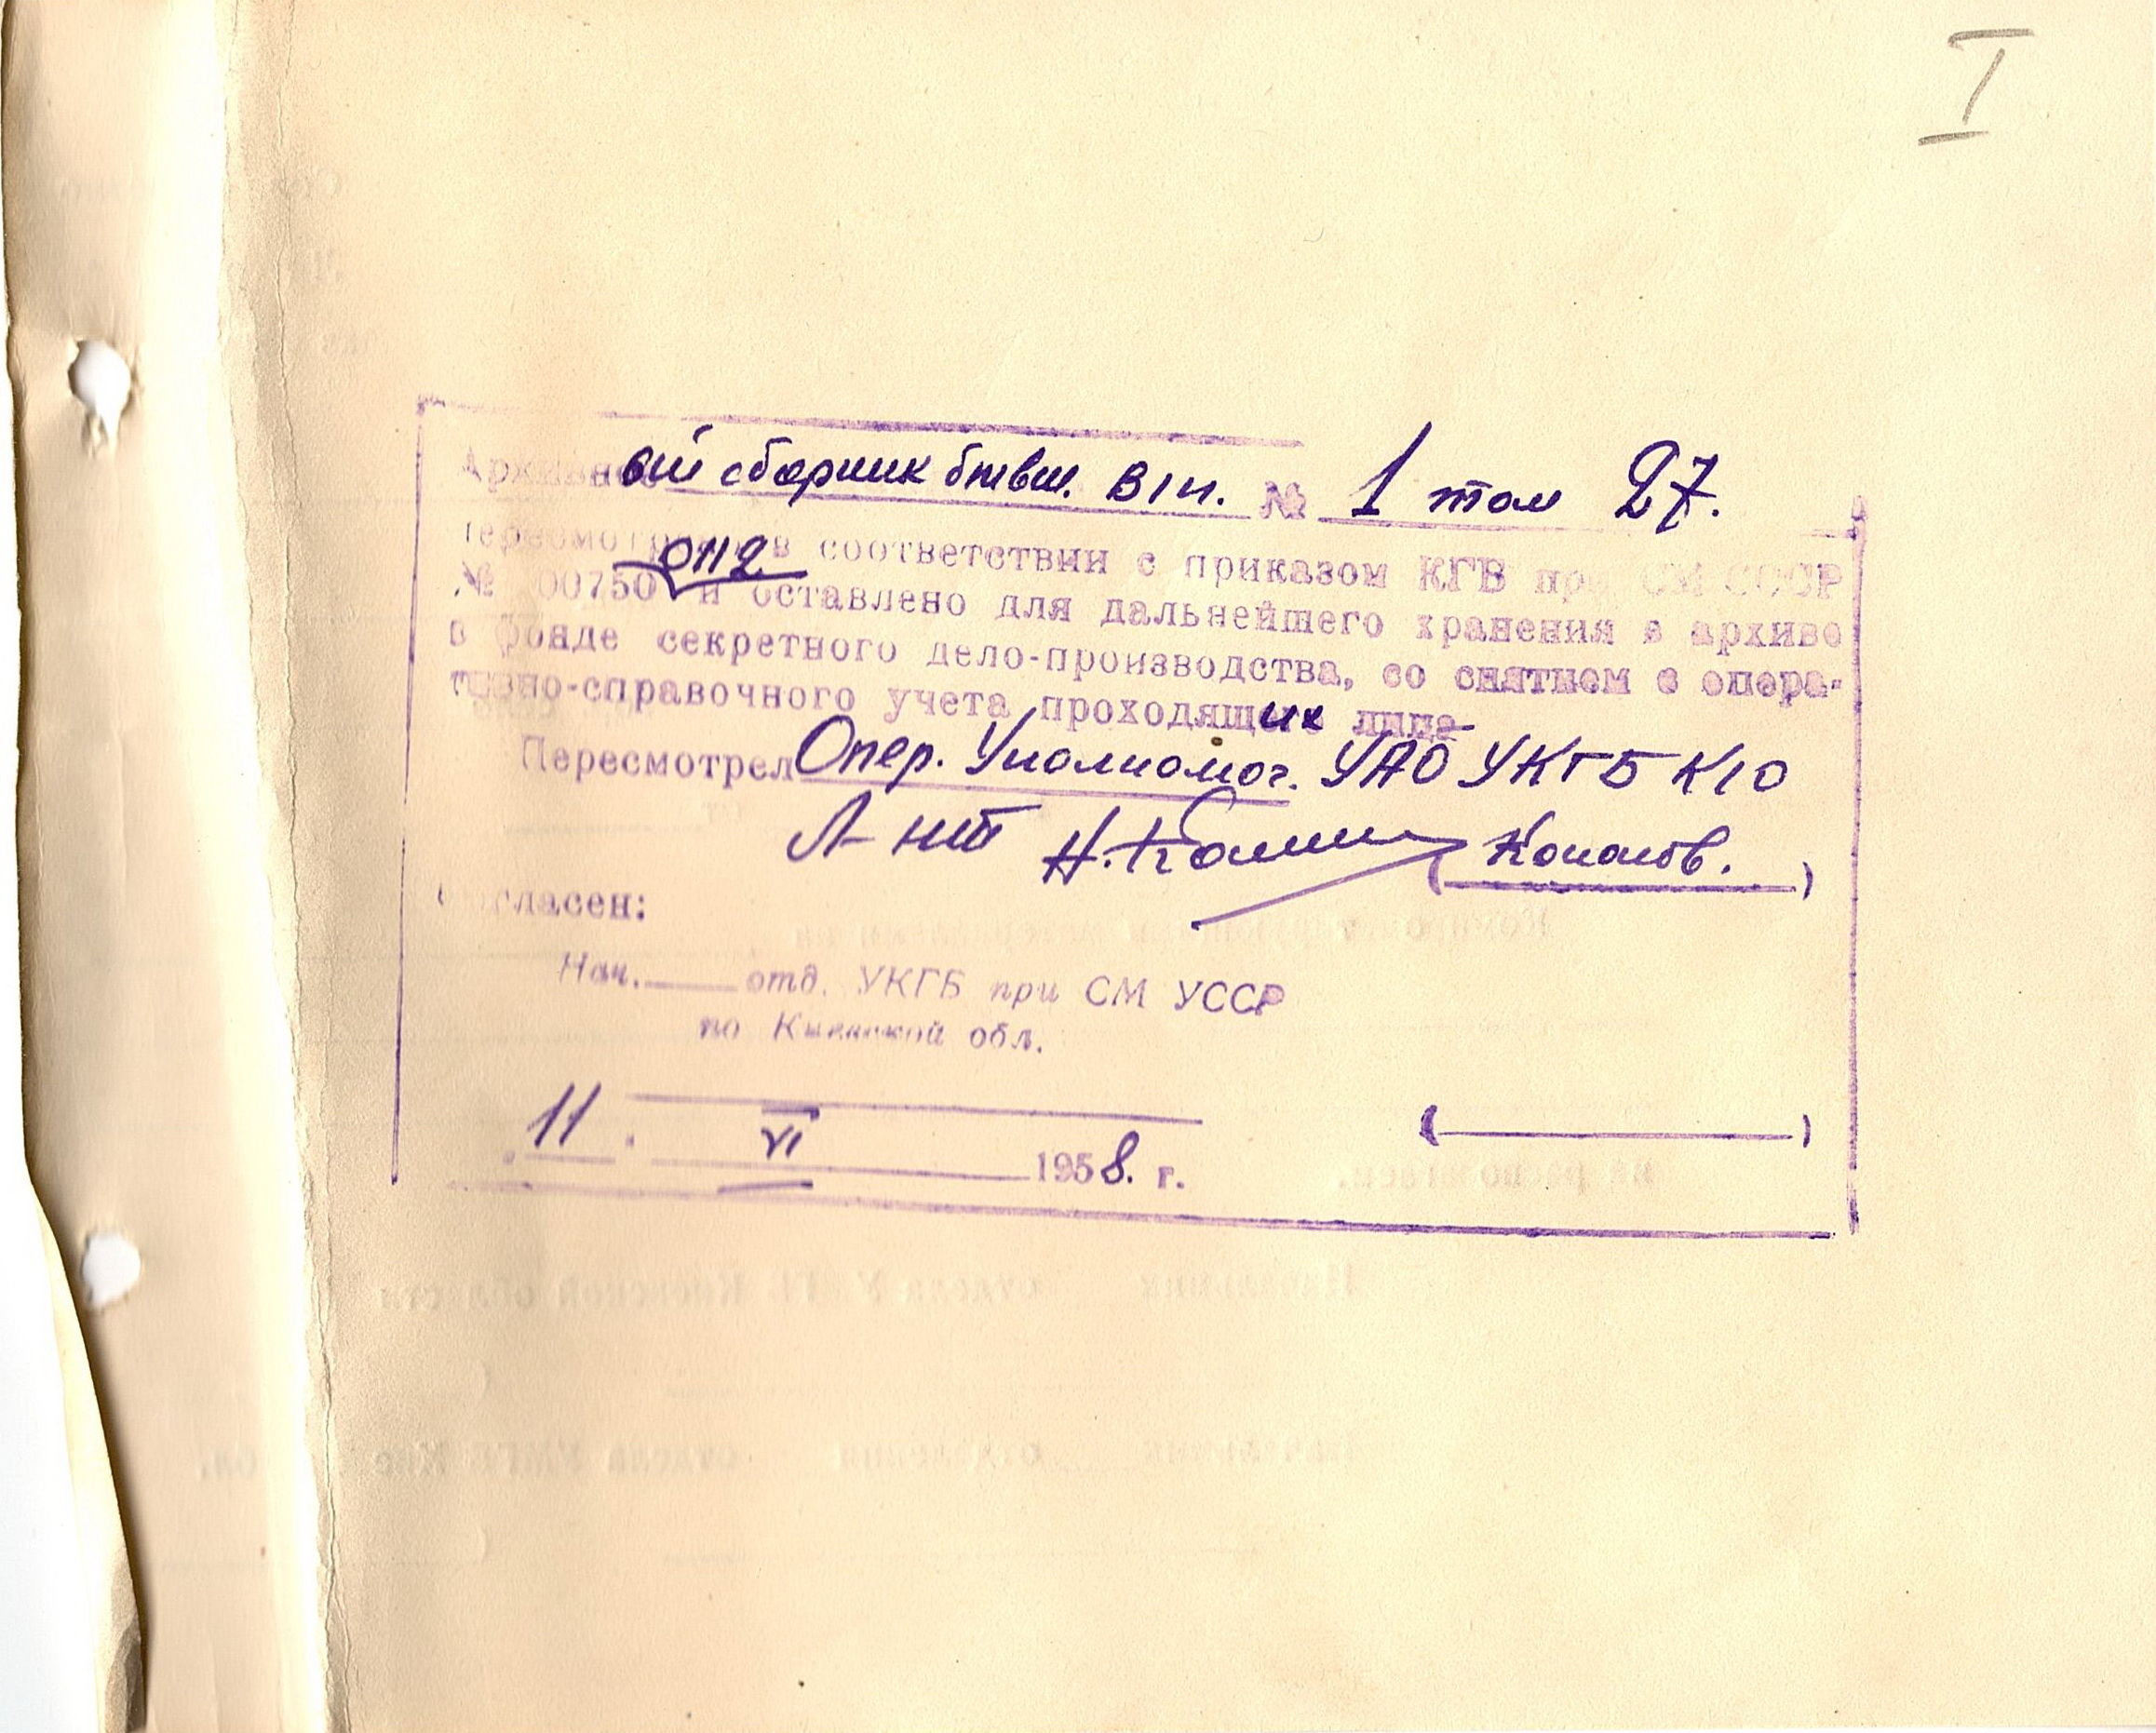 I
Архивный сборник бывш. в/н. № 1 том 27.
0112
пересмотрен в соответствии с приказом КГБ при СМ СССР
№ 00750 и оставлено для дальнейшего хранения в архиве
в фонде секретного дело-производства, со снятием с опера-
тивно-справочного учета проходящих лица
Пересмотрел Опер. Уполномог. УАО УКГБ К/О
Л-нт (Конопов.)
Согласен:
Нач. отд. УКГБ при СМ УССР
по Киевской обл.
11. VI 1958. г.